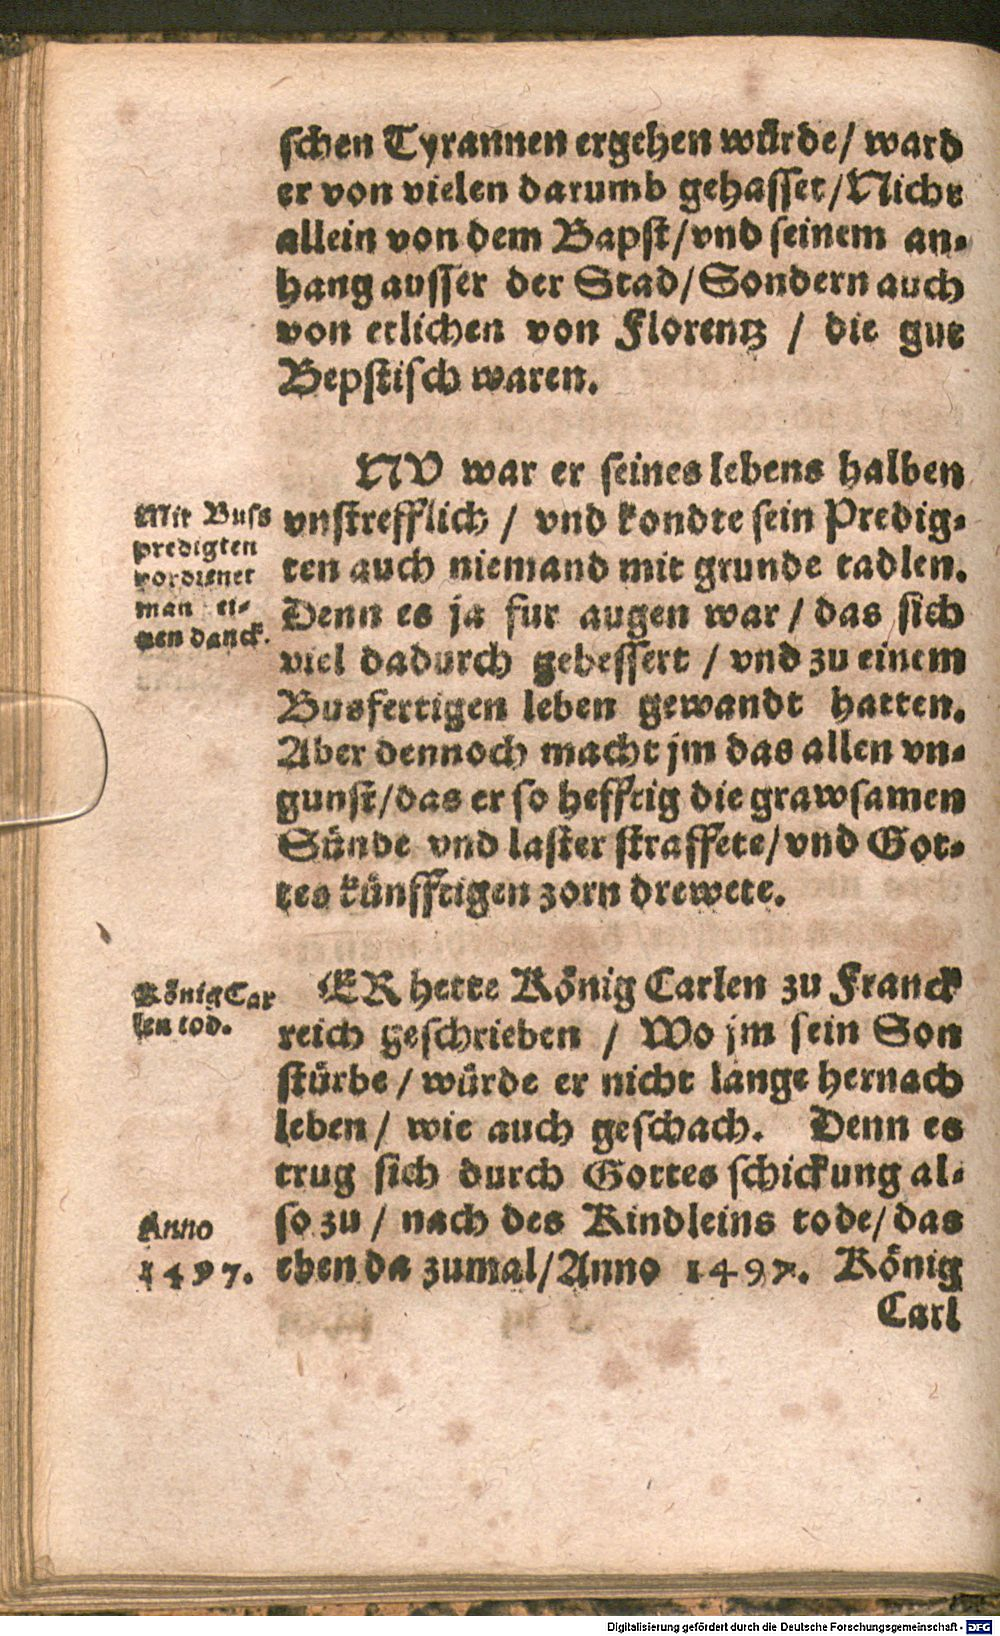 ſchen Tyrannen ergehen würde/ ward
er von vielen darumb gehaſſet/Nicht
allein von dem Bapſt/vnd ſeinem an-
hang auſſer der Stad/Sondern auch
von etlichen von Florentz / die gut
Bepſtiſch waren.
NV war er ſeines lebens halben
vnſtrefflich / vnd kondte ſein Predig-
ten auch niemand mit grunde tadlen.
Denn es ja fur augen war / das ſich
viel dadurch gebeſſert / vnd zu einem
Busfertigen leben gewandt hatten.
Aber dennoch macht jm das allen vn-
gunſt/das er ſo hefftig die grawſamen
Sünde vnd laſter ſtraffete/vnd Got-
tes künfftigen zorn drewete.
Mit Buſs
predigten
vordienet
man ei-
nen danck.
ER hette König Carlen zu Franck
reich geſchrieben / Wo jm ſein Son
ſtürbe / würde er nicht lange hernach
leben / wie auch geſchach. Denn es
trug ſich durch Gottes ſchickung al-
ſo zu / nach des Kindleins tode/das
eben da zumal/Anno 1497. König
König Car
len tod.
Anno
1497.
Carl
Digitalisierung gefördert durch die Deutsche Forschungsgemeinschaft - DFG